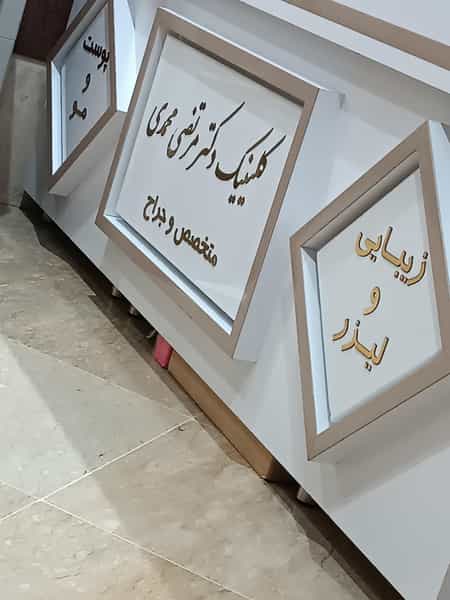 پوست
و
مو
کلینیک دکتر مرتضی محمدی
متخصص و جراح
زیبایی
و
لیزر